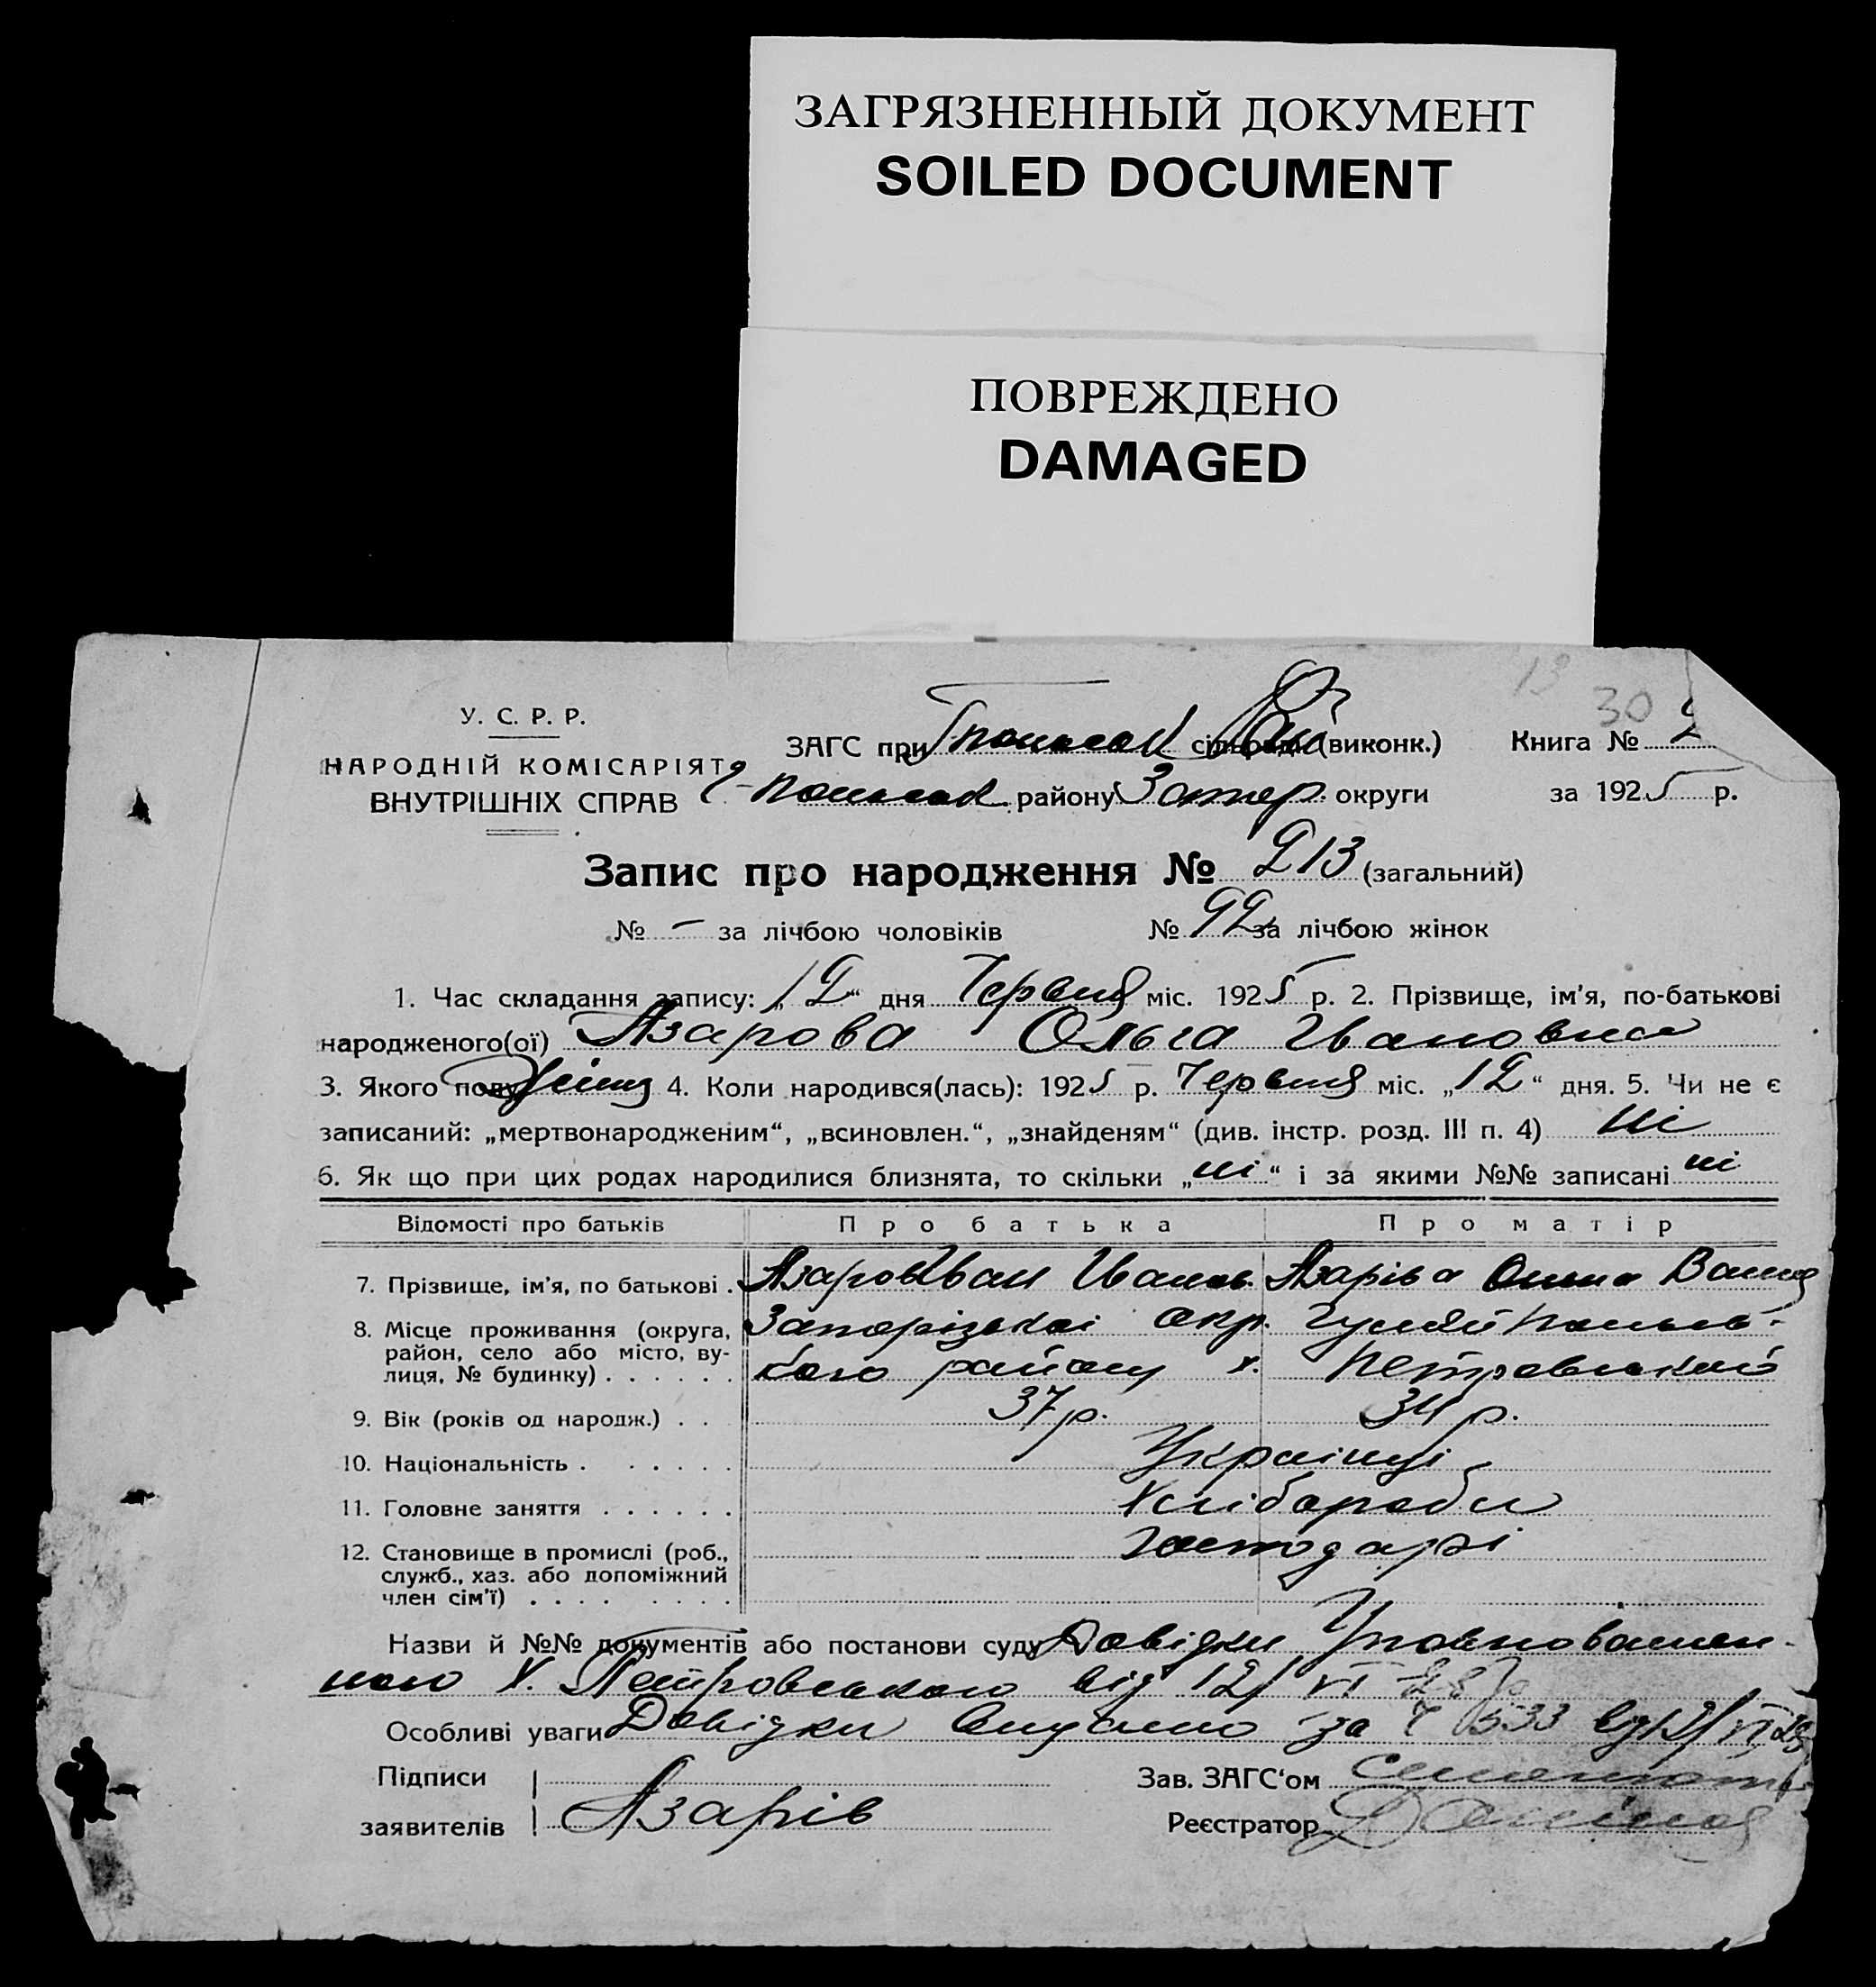 ЗАГРЯЗНЕННЫЙ ДОКУМЕНТ
SOILED DOCUMENT
ПОВРЕЖДЕНО
DAMAGED
13
30
У. С. Р. Р.
НАРОДНІЙ КОМІСАРІЯТ
ВНУТРІШНІХ СПРАВ
ЗАГС при сільради (виконк.) Книга № 2
району Запор. округи за 1925 р.
Запис про народження № 213 (загальний)
№ - за лічбою чоловіків № 92 за лічбою жінок
1. Час складання запису: „12“ дня Червня міс. 1925 р. 2. Прізвище, ім’я, по-батькові
народженого(ої) Азарова Ольга Ивановна
3. Якого полу 4. Коли народився(лась): 1925 р. Червня міс. „12“ дня. 5. Чи не є
записаний: „мертвонародженим“, „всиновлен.“, „знайденям“ (див. інстр. розд. III п. 4) ні
6. Як що при цих родах народилися близнята, то скільки „ні“ і за якими №№ записані ні
Відомості про батьків Про батька Про матір
7. Прізвище, ім’я, по батькові . Азаров Иван Иванов. Азаріва
8. Місце проживання (округа, Запорізькоі окр. Гуляй
район, село або місто, ву- району х. Петровський
лиця, № будинку) . . . . . .
9. Вік (років од народж.) . . 37 р. 34 р.
10. Національність . . . . . . Украінці
11. Головне заняття . . . . . . Хлібороби
12. Становище в промислі (роб., господарі
служб., хаз. або допоміжний
член сім’ї) . . . . . . . .
Назви й №№ документів або постанови суду Довідки Уповноважен-
ного Х. Петровського від 12/VI
Особливі уваги Довідки видано за 533
Підписи Зав. ЗАГС‘ом
заявителів Азарів Реєстратор